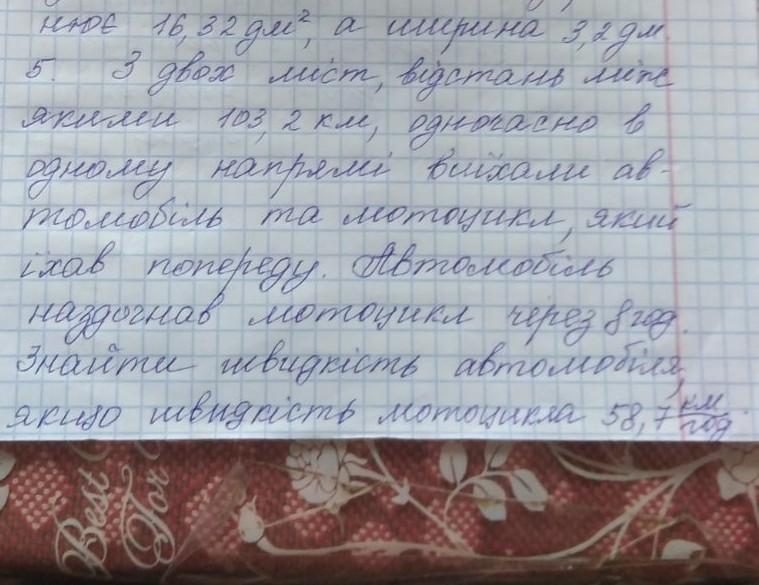 нює 16,32 дм², а ширина 3,2 дм.
5. З двох міст, відстань між
якими 103,2 км, одночасно в
одному напрямі виїхали ав-
томобіль та мотоцикл, який
їхав попереду. Автомобіль
наздогнав мотоцикл через 8 год.
Знайти швидкість автомобіля,
якщо швидкість мотоцикла 58,7 км/год.
Best
For